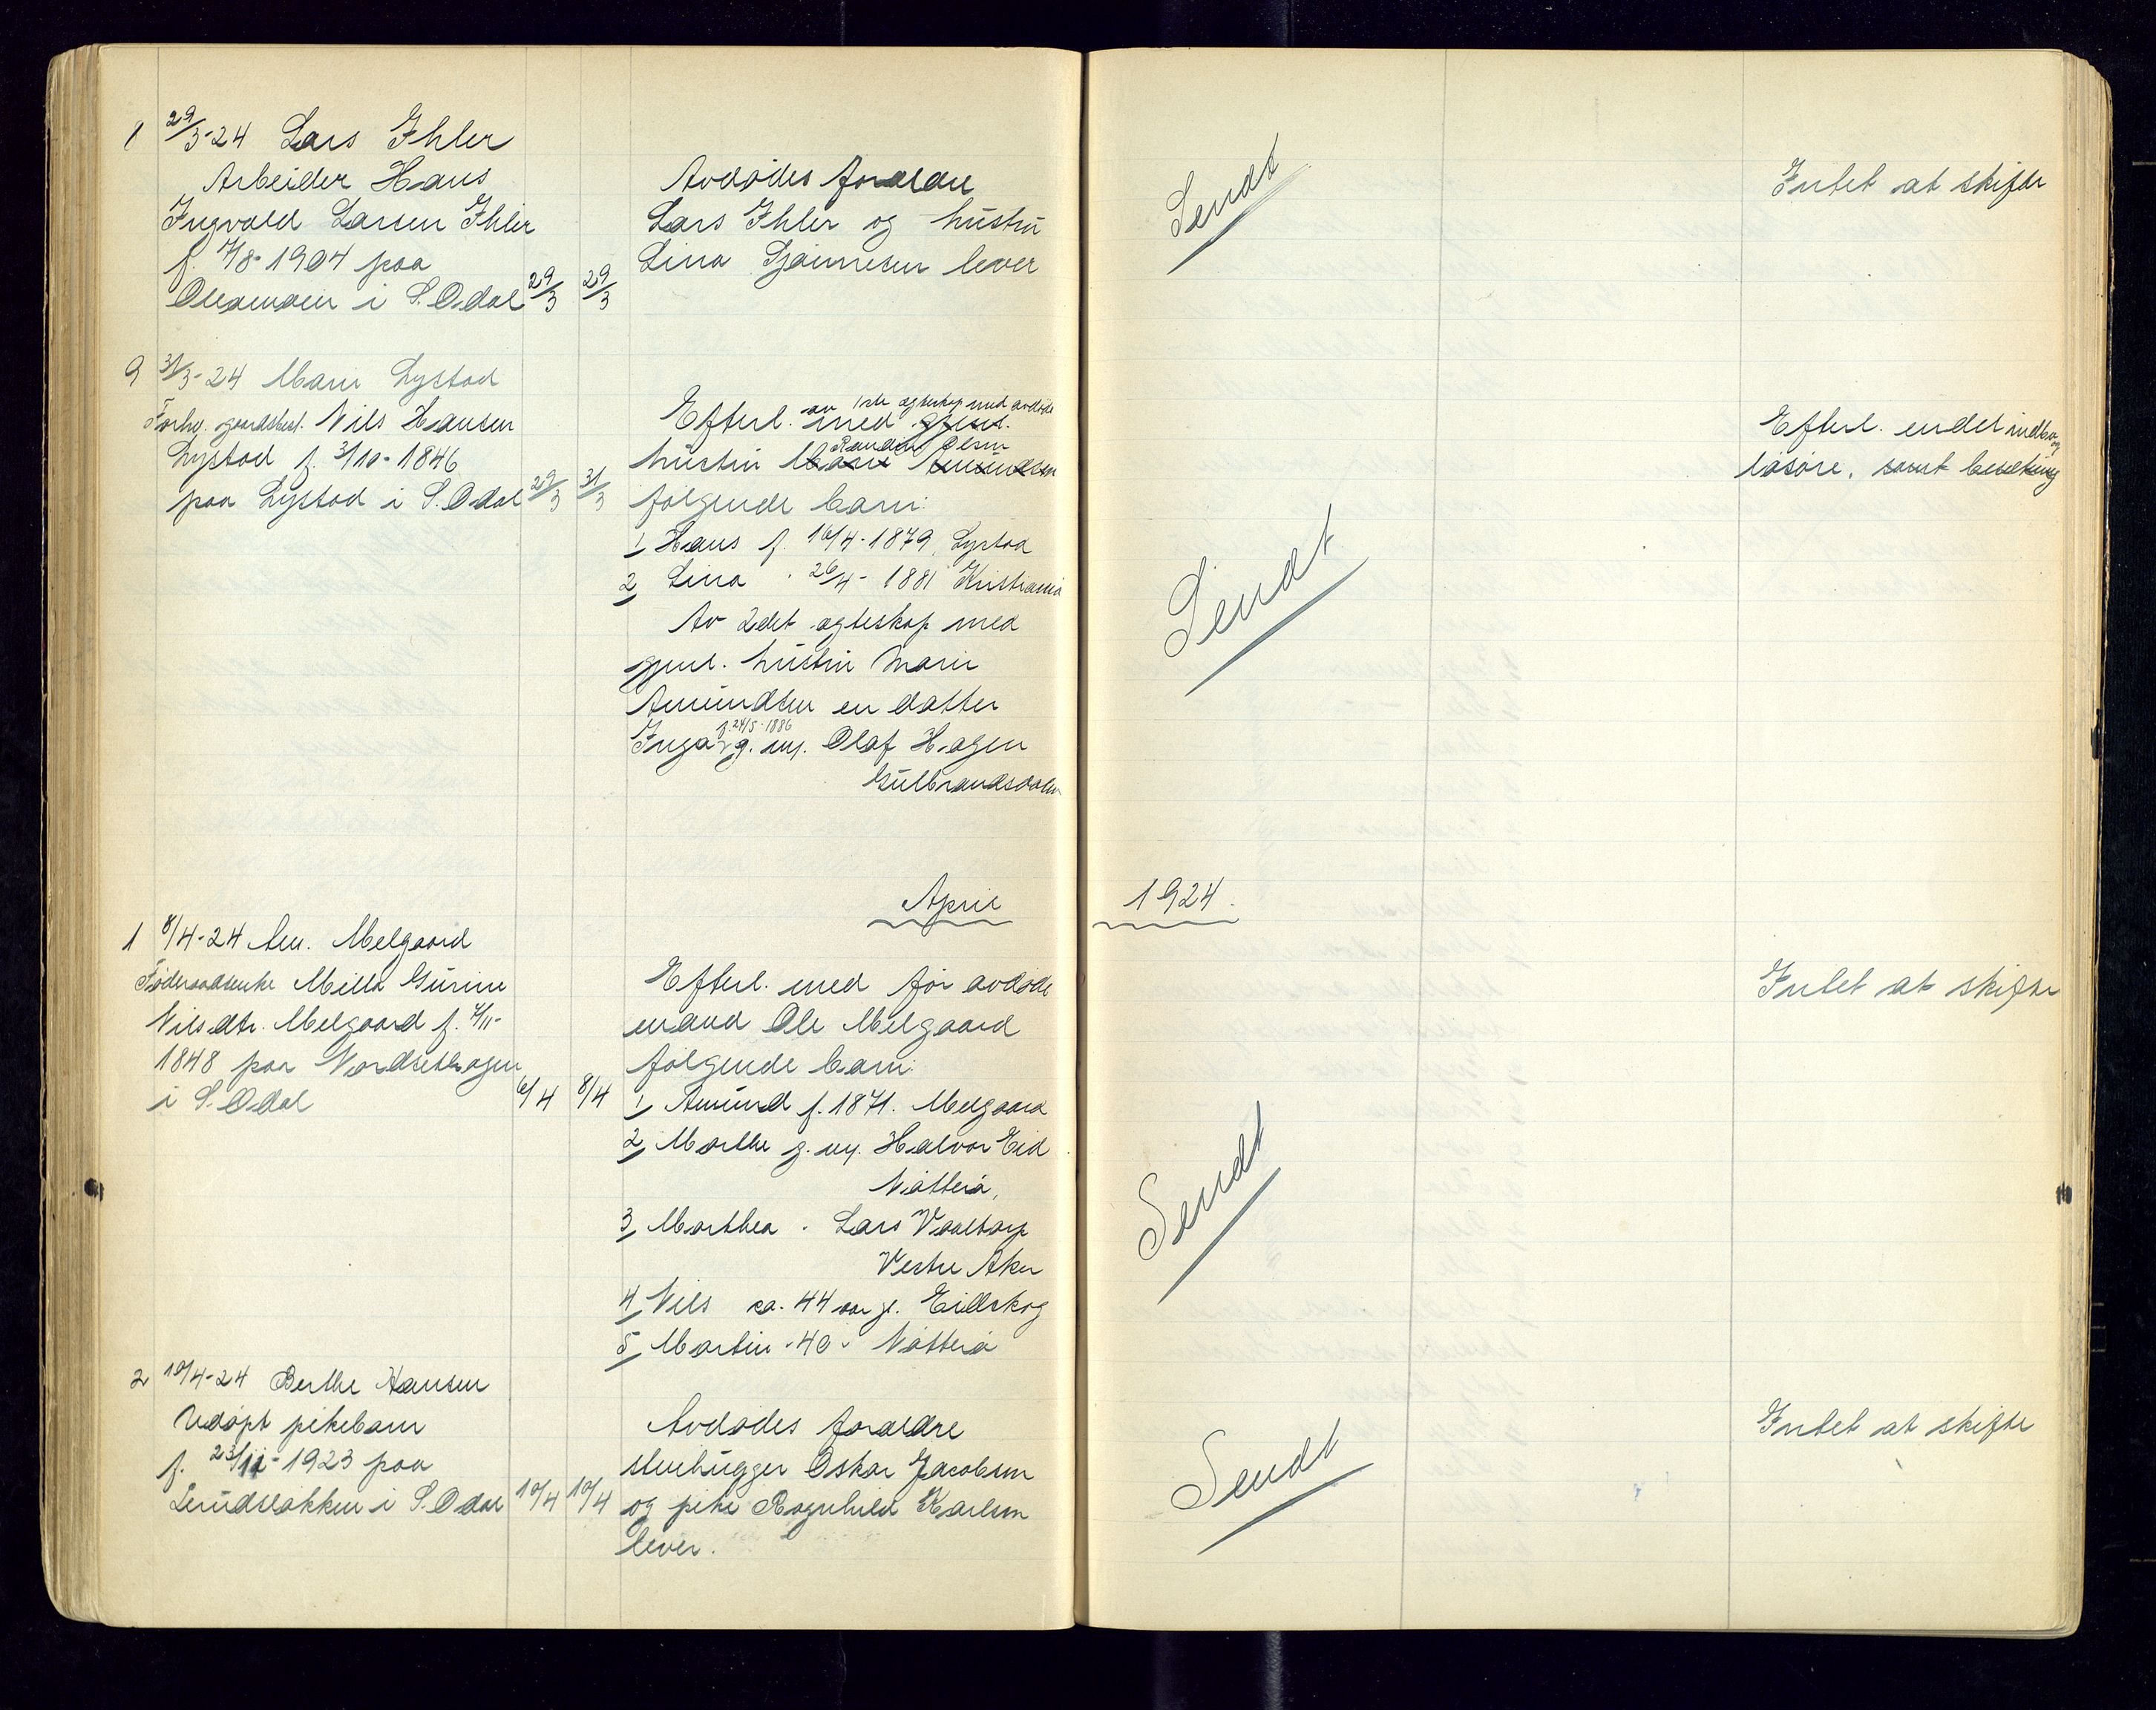 1 29/3-24 Lars Ihler
Arbeider Hans
Ingvald Larsen Ihler
f. 4/8-1904 paa
i S. Odal 29/3 29/3
Avdødes forældre
Lars Ihler og hustru
Lina lever
Sendt
Intet at skifte
9 31/3-24 Marie Lystad
Forhv. gaardbest. Nils Hansen
Lystad f. 3/10-1846
paa Lystad i S. Odal 29/3 31/3
Efterl. av 1ste egteskap med avdøde
med gjenl.
Randine Olsen
hustru Marie Amundsen
følgende barn:
1, Hans f. 16/4-1879, Lystad
2, Lina " 26/4-1881 Kristiania
Av 2det egteskap med
gjenl. hustru Marie
Amundsen en datter
f. 24/5-1886
Inga g. m. Olaf Hagen
Gulbrandsdalen
Sendt
Efterl. endel indbo og
løsøre, samt besetning
April 1924.
1 8/4-24 Am. Melgaard
Føderaadsenke Milla Gurine
Nilsdtr. Melgaard f. 4/11-
1848 paa Nordsethagen
i S. Odal 6/4 8/4
Efterl. med før avdøde
mand Ole Melgaard
følgende barn:
1, Amund f. 1871. Melgaard
2, Marthe g. m. Halvor Eid
Nøtterø,
3, Marthea " Lars Vaaltorp
Vestre Aker
4, Nils ca. 44 aar gl. Eidskog
5, Martin " 40 " Nøtterø
Sendt
Intet at skifte
2 10/4-24 Berthe Hansen
Udøpt pikebarn
f. 23/11-1923 paa
i S. Odal 10/4 10/4
Avdødes forældre
stenhugger Oskar Jacobsen
og pike Ragnhild Karlsen
lever.
Sendt
Intet at skifte